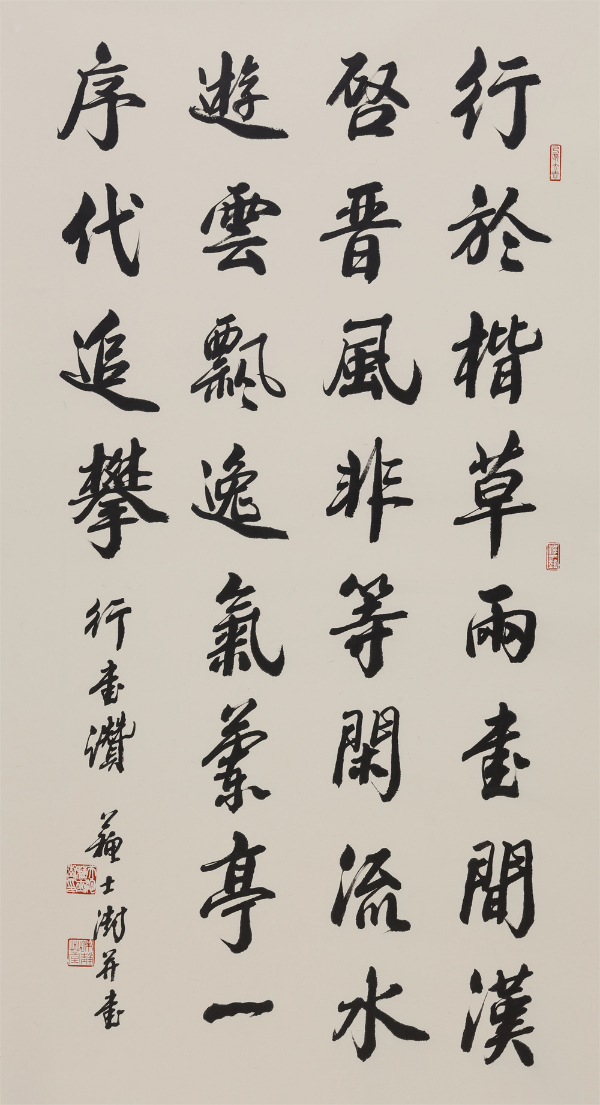 行於楷草兩書間漢
啓晉風非等閑流水
遊雲飄逸氣蘭亭一
序代追攀
行書讚 蘇士澍并書